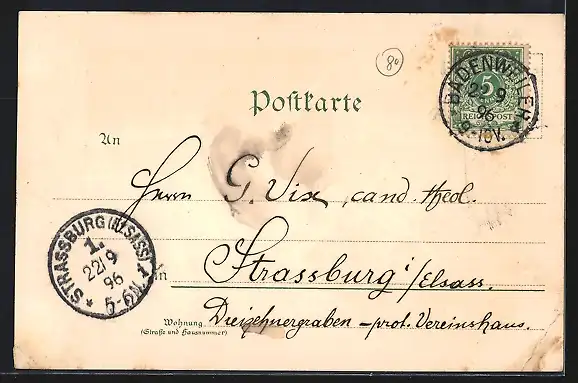 80
5
REICHSPOST
BADENWEILER
22 9
96
8-10V.
Postkarte
An
Herrn G. Vix, cand. theol.
STRASSBURG (ELSASS) 1
1.
22/9
96
5-6N.
in Strassburg i/Elsass.
Wohnung Dreizehnergraben - prot. Vereinshaus.
(Straße und Hausnummer)